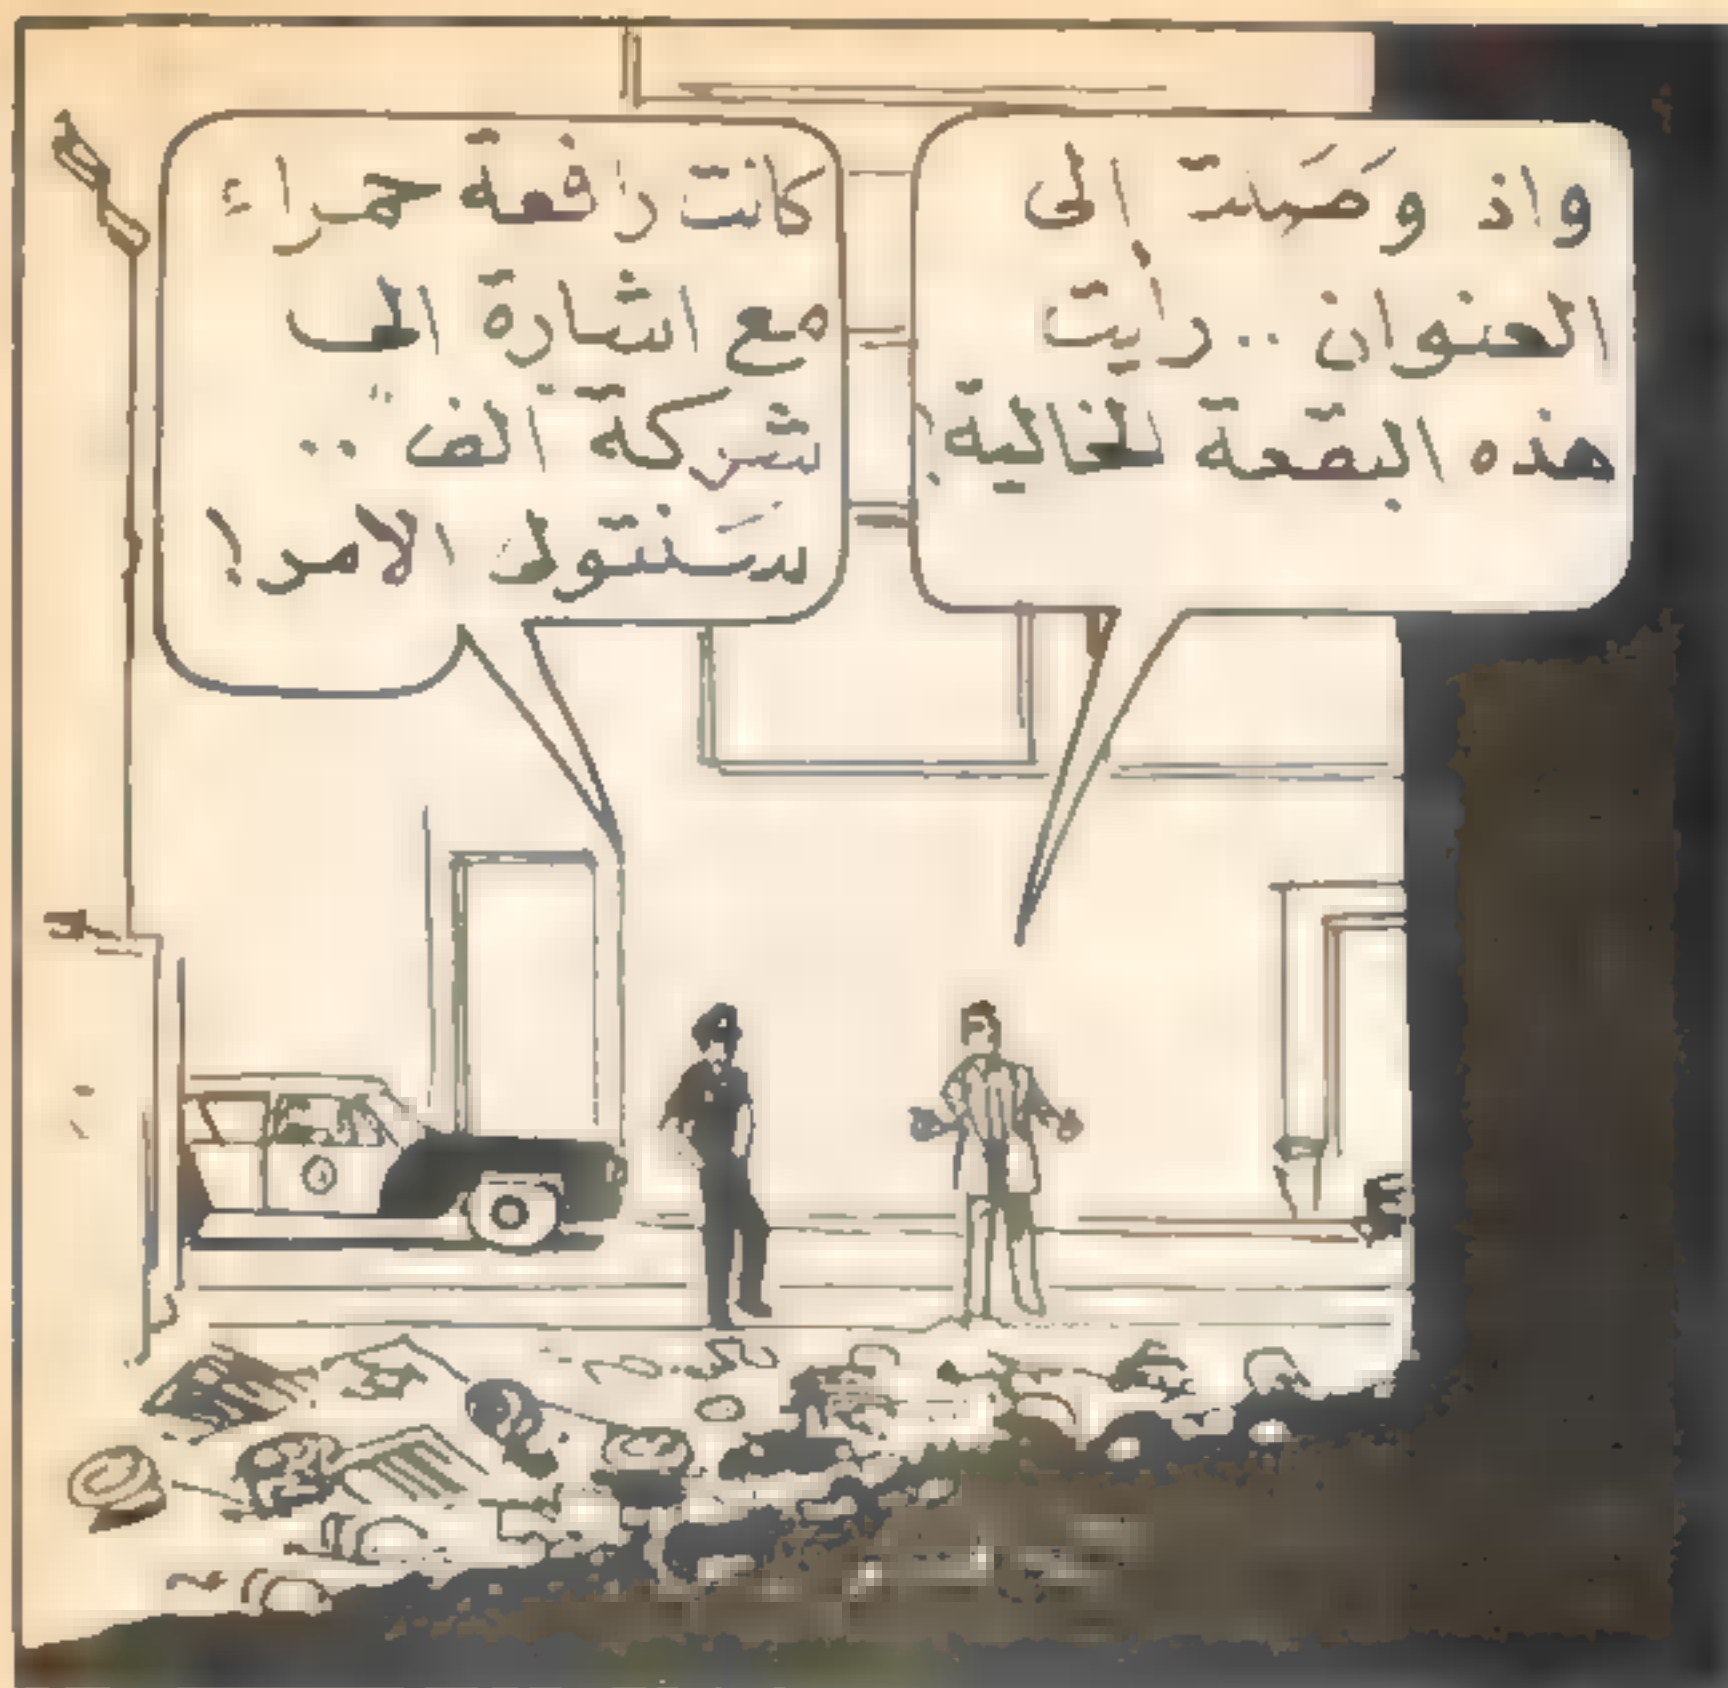 واذ وَصَلتَ الى
العنوان .. رأيت
هذه البقعة الخالية!
كانت رافعة حمراء
مع اشارة الى
شركة "الف" ..
سَنتولى الامر!